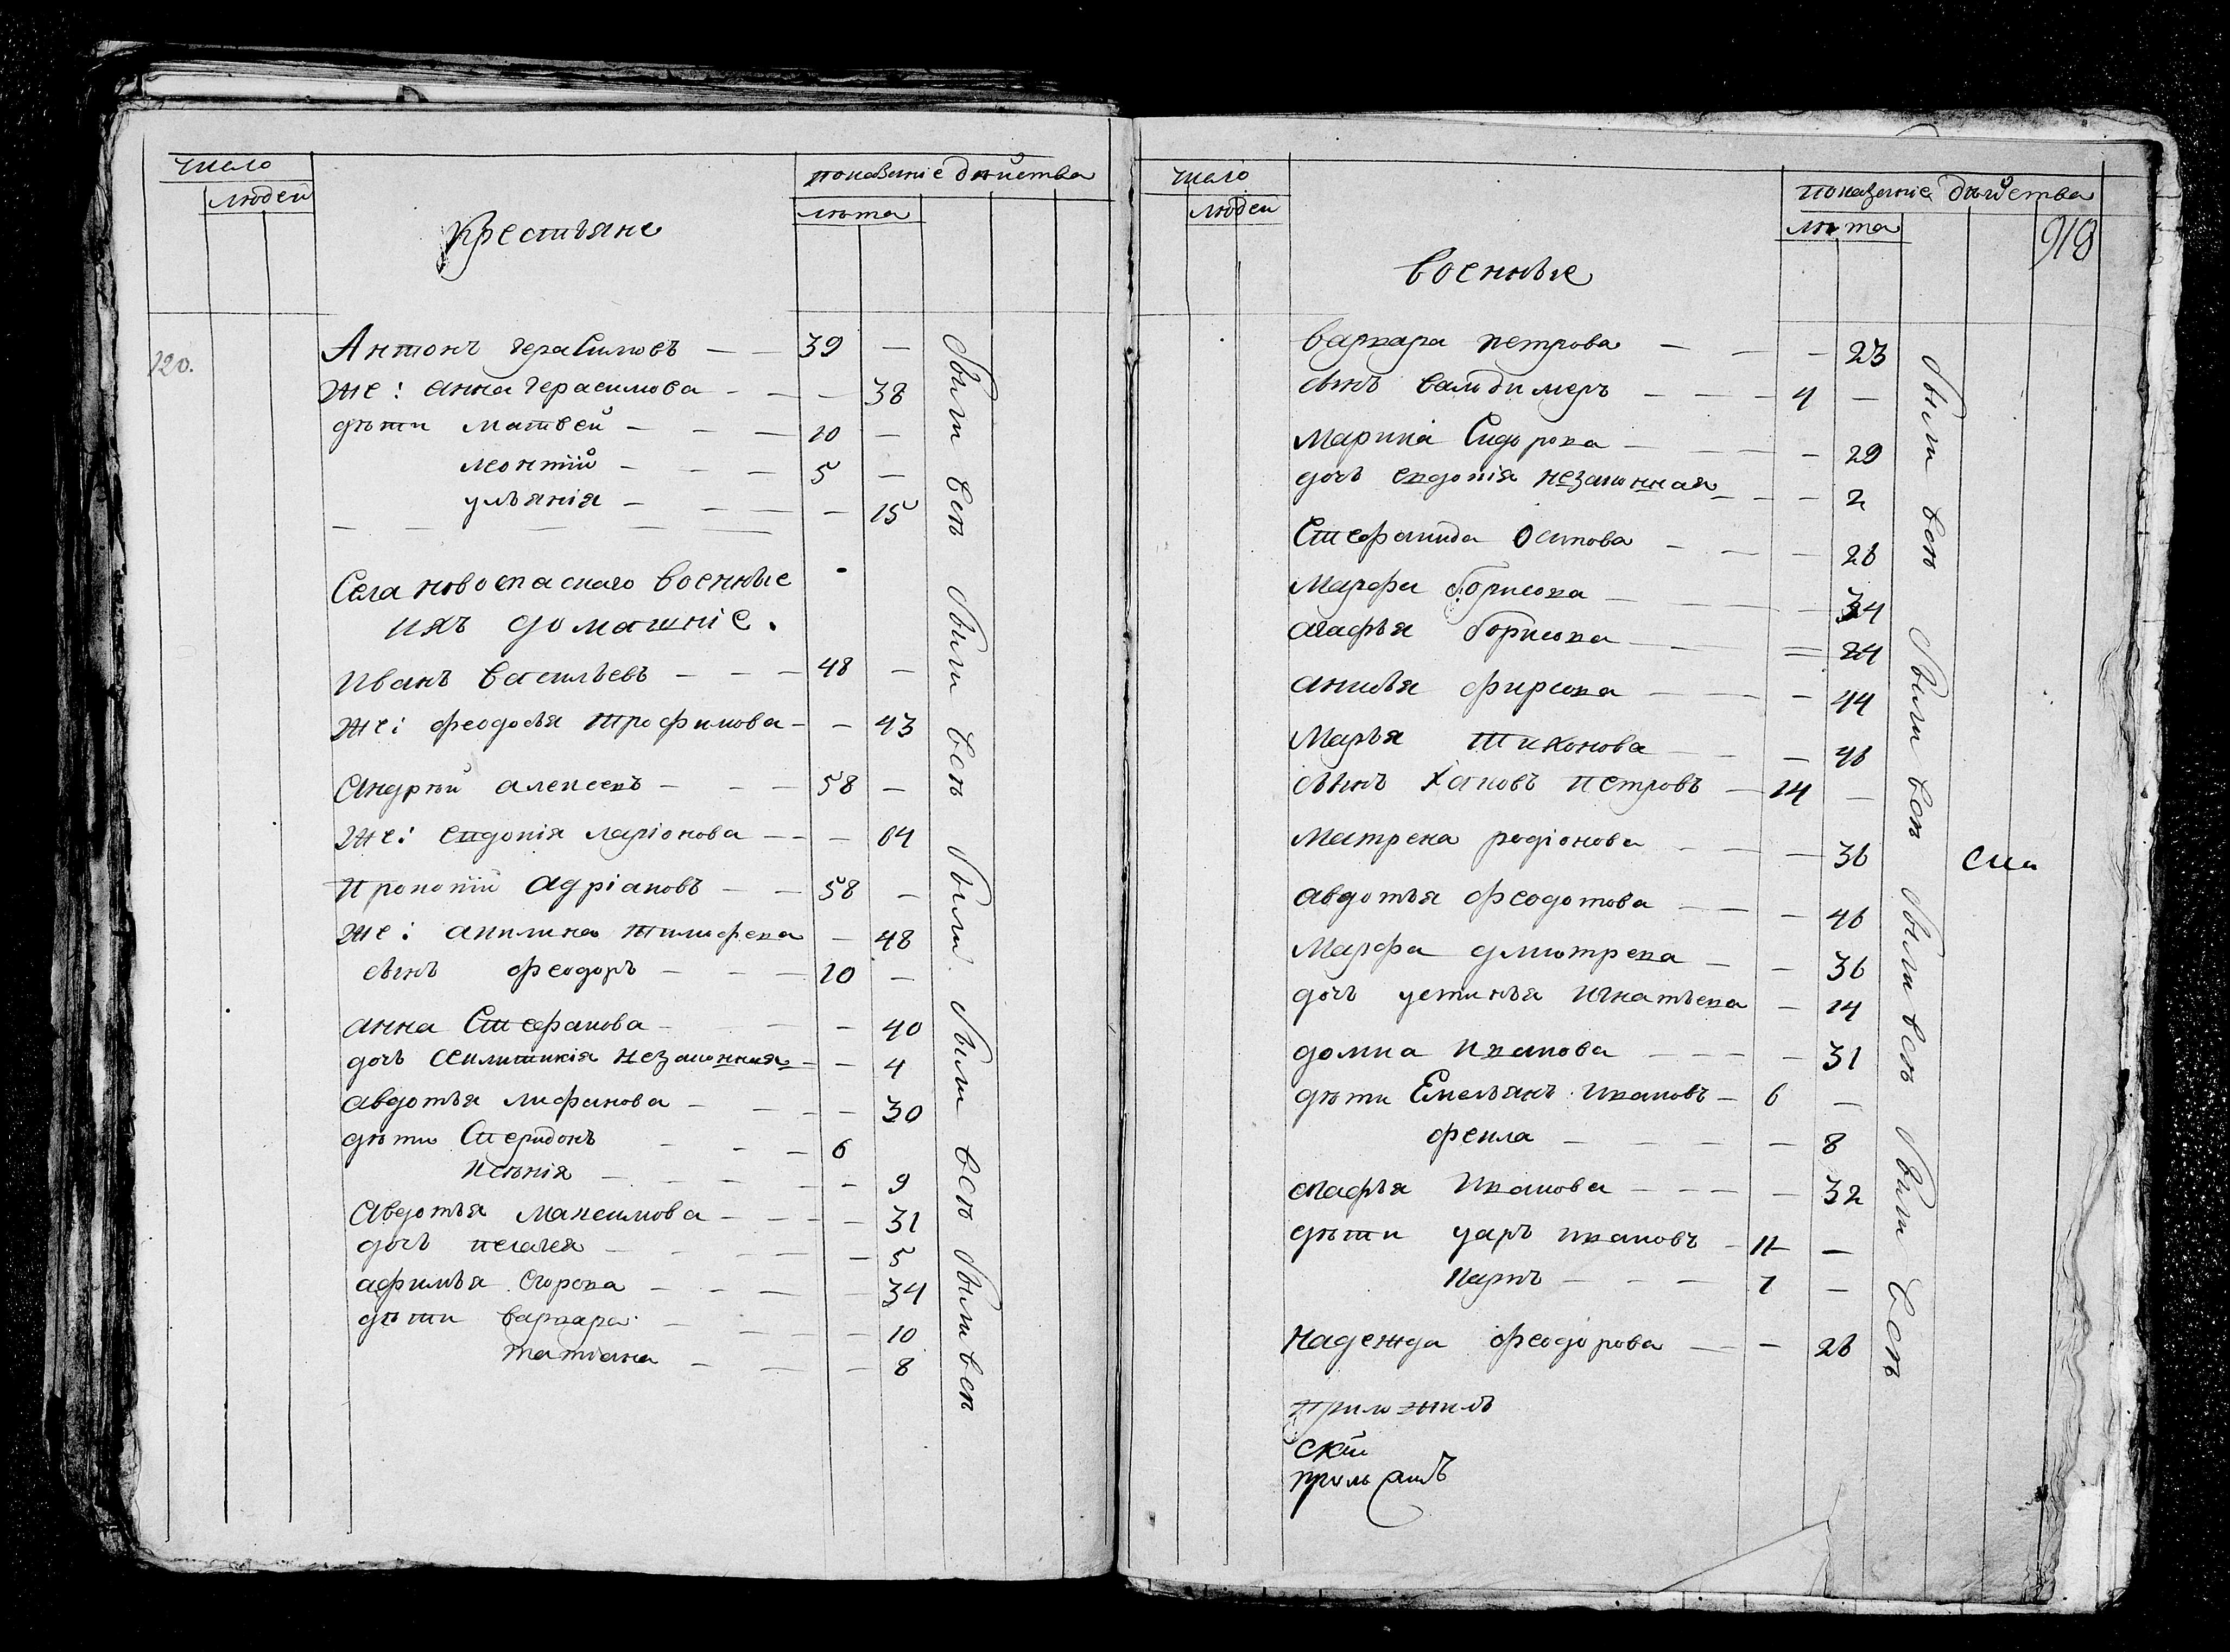 число
людей
Крестьяне
показание действа
лѣта
120.
Антонъ Герасимовъ — — 39 —
же: анна Герасимова - — — 38
дѣти матвей — — — 10 —
леонтiй — — — 5 —
ульянiя — — — — 15
Села новоспаскаго военные
ихъ домашнiе.
Иванъ Васильевъ — — — 48 —
же: феодосья трофимова — — 43
Андрѣй алексеевъ — — — 58 —
же: евдокiя ларiонова — — — 64
Прокопiй адрiановъ — — 58 —
же: акилина тимофеева — 48
сынъ феодоръ — — — 10 —
анна Стефанова — — — 40
дочь незаконная — — 4
авдотья — — — 30
дѣти Спиридонъ — — — 6
ксенiя — — — — 9
Авдотья максимова — — — — 31
дочь пелагея — — — — 5
афимья егорова — — — — 34
дѣти варвара — — — — 10
татiана — — — 8
были всѣ были всѣ были были всѣ были всѣ
число
людей
военные
показание действа
лѣта
варвара петрова — — — 23
сынъ валодимеръ — — — 4 —
Марина Сидорова — — — 29
дочь евдокiя незаконная — — — 2
Стефанида Осипова — — — 26
Марфа борисова — — — 34
агафья борисова — — — 24
анисья фирсова — — — 44
Марья тихонова — — 46
сынъ Яковъ петровъ — 14 —
Матрена родiонова — — — 36
авдотья феодотова — — — 46
Марфа дмитрева — — 36
дочь устинья игнатьева — 14
домна иванова — — — — 31
дѣти Емельянъ ивановъ — 6 —
фекла — — — — — 8
агафья иванова — — — — 32
дѣти уаръ ивановъ — 11 —
карпъ — — — 7 —
надежда феодорова — — — 26
были всѣ были всѣ были всѣ были всѣ
приложилъ
скiй